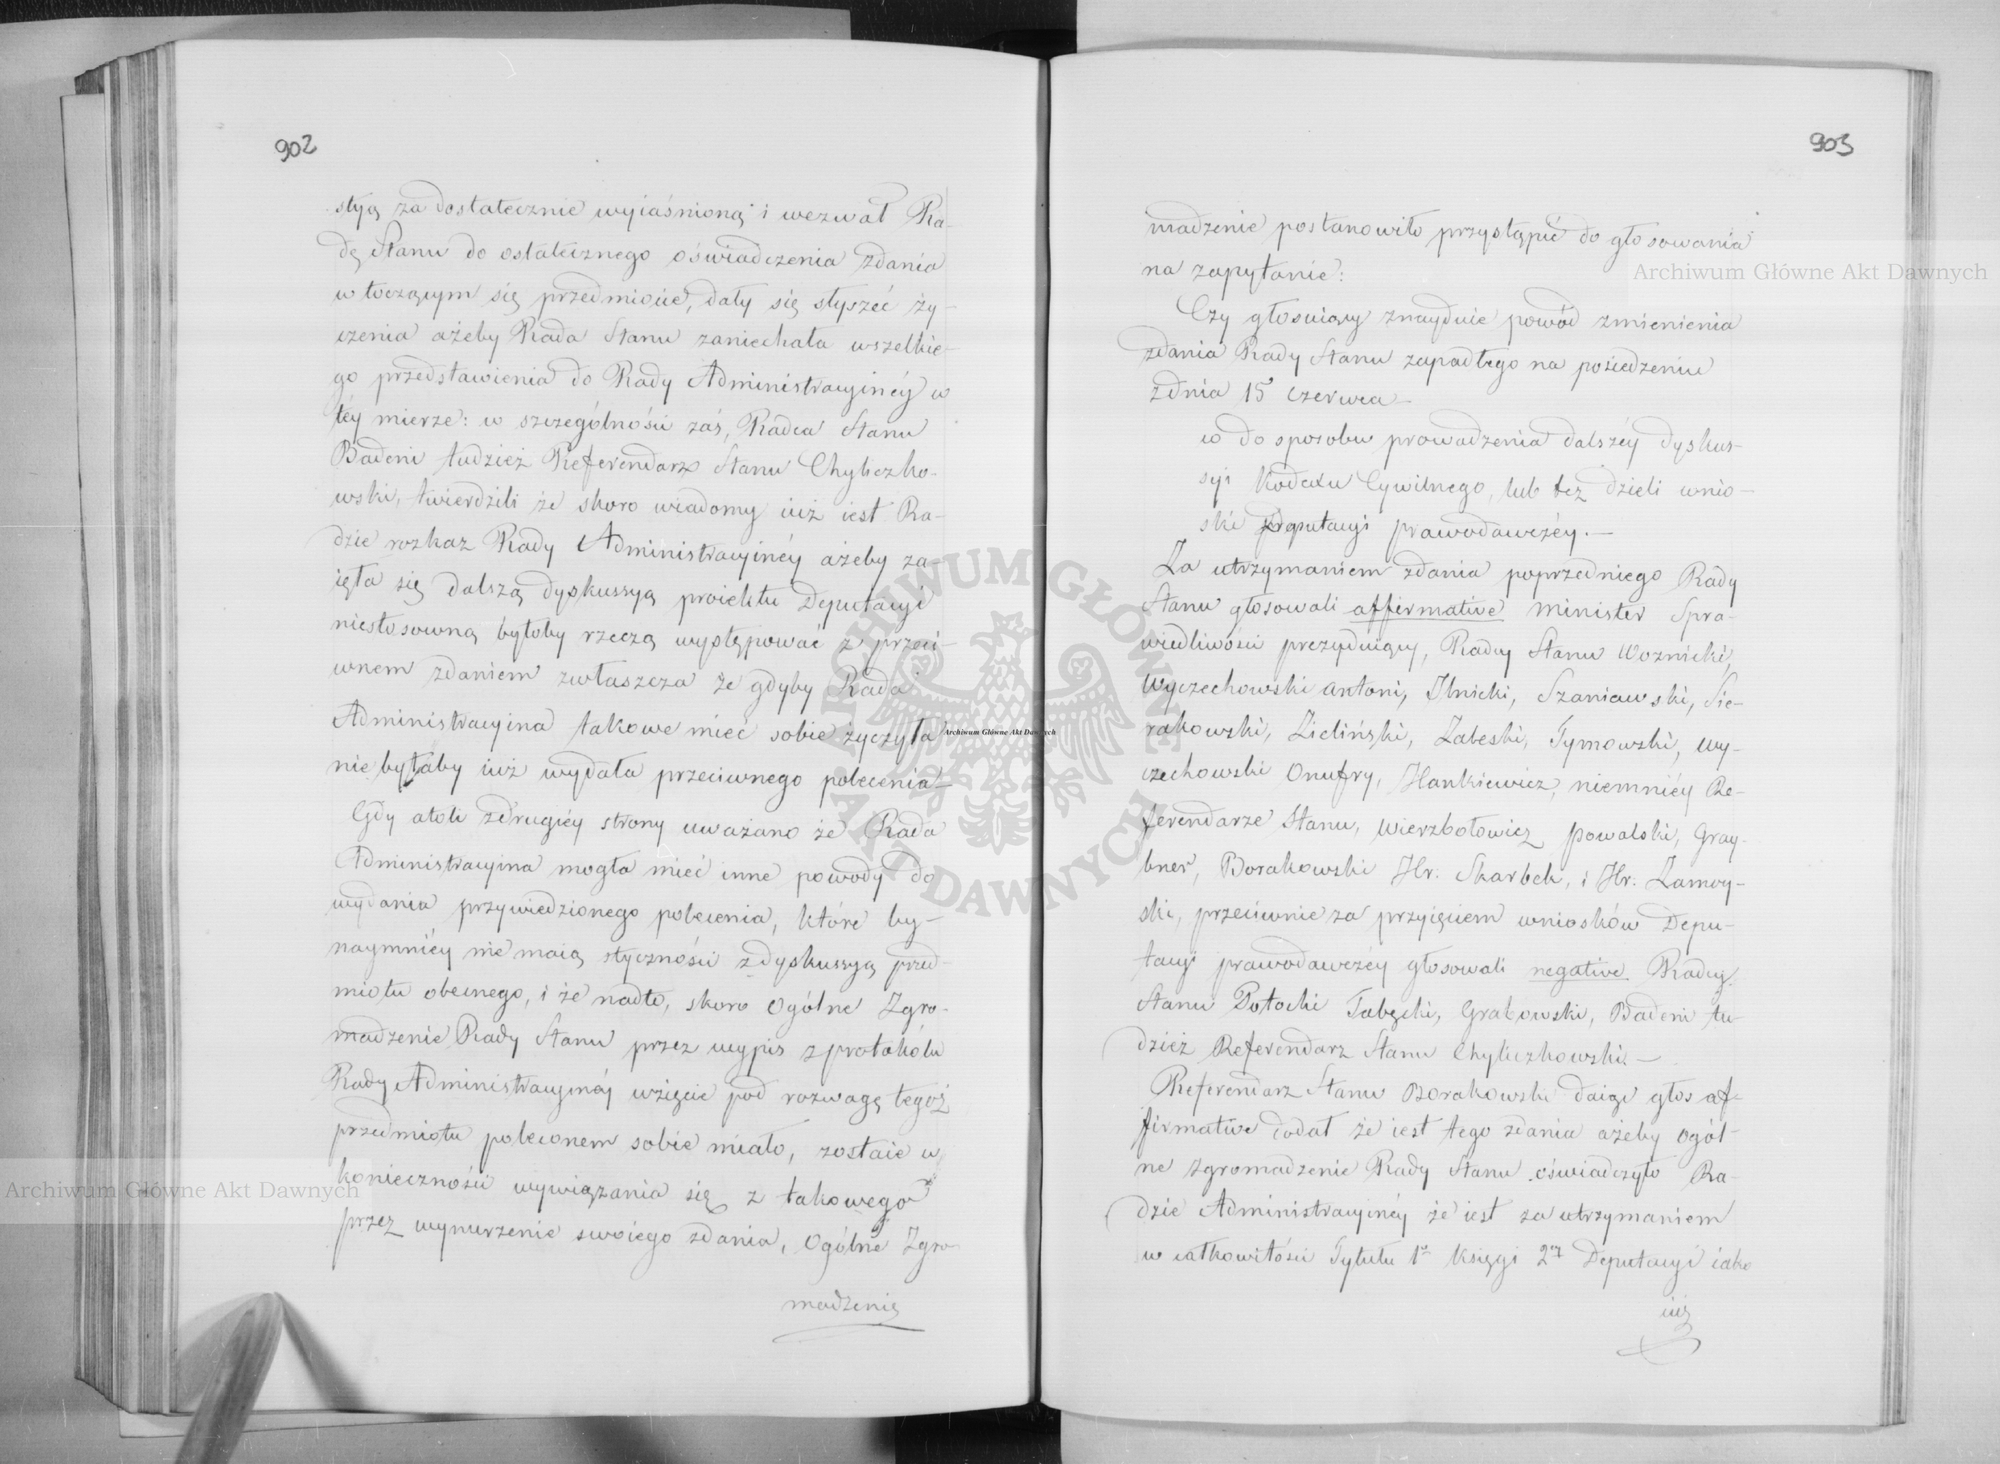 902
styą za dostatecznie wyiaśnioną i wezwał Ra-
dę Stanu do ostatecznego oświadczenia zdania
w toczącym się przedmiocie, dały się słyszeć ży-
czenia ażeby Rada Stanu zaniechała wszelkie-
go przedstawienia do Rady Administracyinéy w
téy mierze: w szczególności zaś, Radca Stanu
Badeni tudzież Referendarz Stanu Chyliczko-
wski, twierdzili że skoro wiadomy iuż iest Ra-
dzie rozkaz Rady Administracyinéy ażeby za-
ięła się dalszą dyskussyą proiektu Deputacyi
niestosowną byłoby rzeczą występować z przeci-
wnem zdaniem zwłaszcza że gdyby Rada
Administracyina takowe mieć sobie życzyła
nie byłaby iuż wydała przeciwnego polecenia—
Gdy atoli z drugiéy strony uważano że Rada
Administracyina mogła mieć inne powody do
wydania przywiedzionego polecenia, które by-
naymniéy nie maią styczności z dyskussyą przed-
miotu obecnego, i że nadto, skoro Ogólne Zgro-
madzenie Rady Stanu przez wypis z protokółu
Rady Administracyinéy wzięcie pod rozwagę tegoż
przedmiotu poleconem sobie miało, zostaie w
konieczności wywiązania się z takowego
przez wynurzenie swoiego zdania, Ogólne Zgro-
madzenie
903
madzenie postanowiło przystąpić do głosowania
na zapytanie:
Czy głosuiący znayduie powód zmienienia
zdania Rady Stanu zapadłego na posiedzeniu
z dnia 15 Czerwca—
co do sposobu prowadzenia dalszéy dyskus-
syi Kodexu Cywilnego, lub też dzieli wnio-
ski Deputacyi prawodawczéy.—
Za utrzymaniem zdania poprzedniego Rady
Stanu głosowali affirmative Minister Spra-
wiedliwości prezyduiący, Radcy Stanu Woznicki,
Wyczechowski Antoni, Ilnicki, Szaniawski, Sie-
rakowski, Zieliński, Zabeski, Tymowski, Wy-
czechowski Onufry, Hankiewicz, niemniéy Re-
ferendarze Stanu, Wierzbołowicz, Powalski, Gray-
bner, Borakowski Hr: Skarbek, i Hr: Zamoy-
ski, przeciwnie za przyięciem wniosków Depu-
tacyi prawodawczéy głosowali negative Radcy
Stanu Potocki Tabęcki, Grabowski, Badeni tu-
dzież Referendarz Stanu Chyliczkowski—
Referendarz Stanu Borakowski daiąc głos af-
firmative dodał że iest tego zdania ażeby Ogól-
ne Zgromadzenie Rady Stanu oświadczyło Ra-
dzie Administracyinéy że iest za utrzymaniem
w całkowitości Tytułu 1o Księgi 2éy Deputacyi iako
iuż
Archiwum Główne Akt Dawnych
Archiwum Główne Akt Dawnych
Archiwum Główne Akt Dawnych
ARCHIWUM GŁÓWNE AKT DAWNYCH